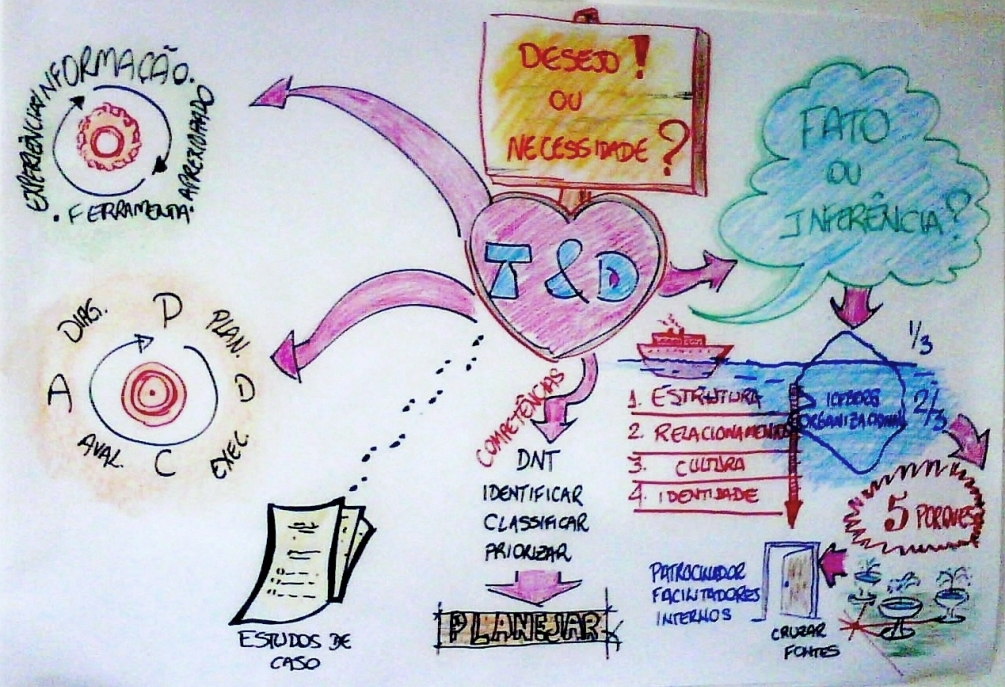 INFORMAÇÃO.
EXPERIÊNCIA
APRENDIZADO
. FERRAMENTA.
DESEJO!
OU
NECESSIDADE?
FATO
OU
INFERÊNCIA?
T & D
DIAG.
P
PLAN.
A
D
AVAL.
C
EXEC.
COMPETÊNCIAS
DNT
IDENTIFICAR
CLASSIFICAR
PRIORIZAR
PLANEJAR
ESTUDOS DE
CASO
1/3
2/3
ICEBERG
ORGANIZACIONAL
1. ESTRUTURA
2. RELACIONAMENTO
3. CULTURA
4. IDENTIDADE
5 PORQUÊS
PATROCINADOR
FACILITADORES
INTERNOS
CRUZAR
FONTES